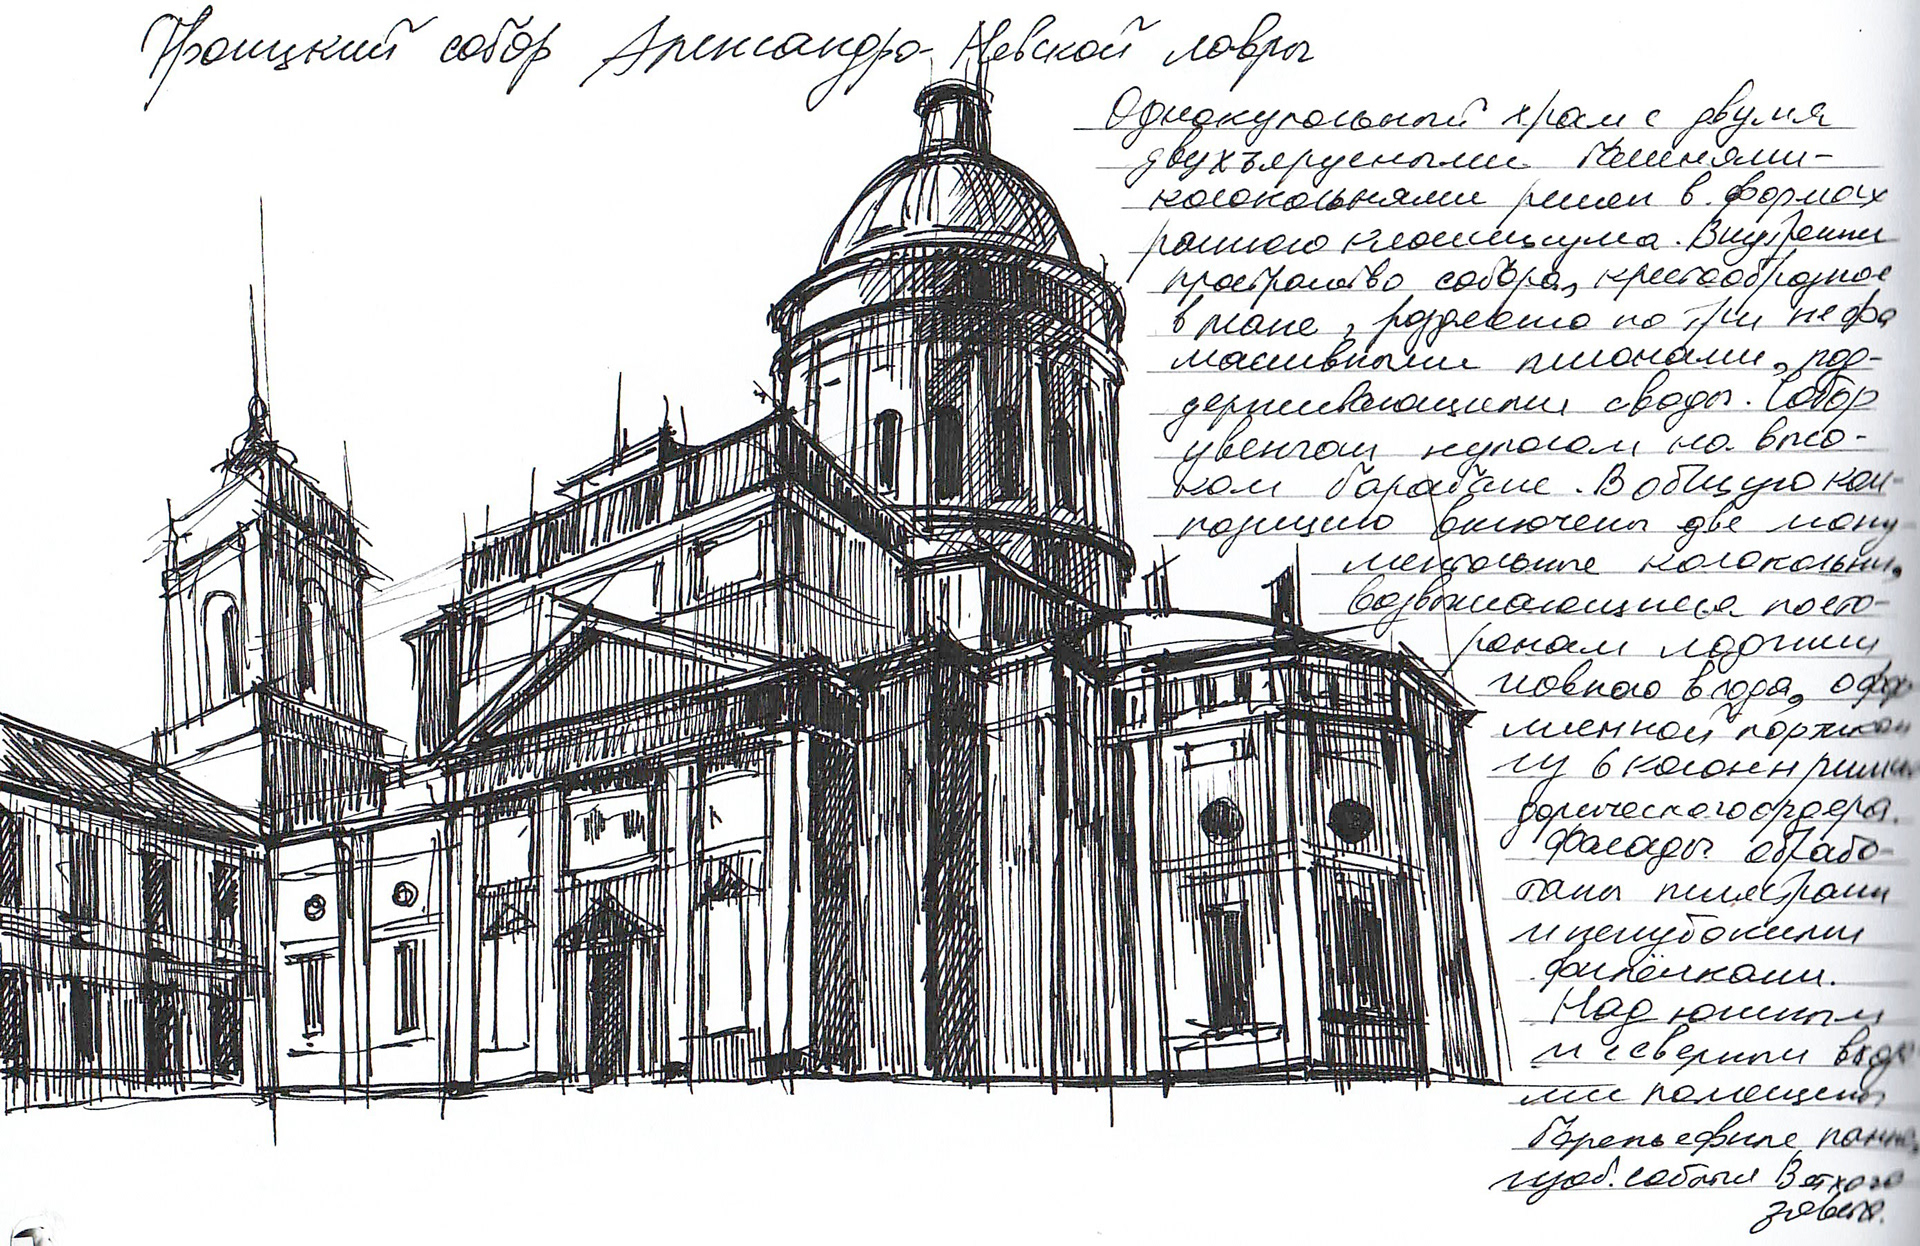 Троицкий собор Александро-Невской лавры
Однокупольный храм с двумя
двухъярусными башнями-
колокольнями решен в формах
раннего классицизма. Внутреннее
пространство собора, крестообразное
в плане, разделено на три нефа
массивными пилонами, под-
держивающими своды. Собор
увенчан куполом на высо-
ком барабане. В общую ком-
позицию включены две мону-
ментальные колокольни,
возвышающиеся по сто-
ронам лоджии
главного входа, офор
мленной портиком
из 6 колонн римско
дорического ордера.
Фасады обрабо-
таны пилястрами
и неглубокими
филёнками.
Над южным
и северным входа
ми помещены
барельефные панно,
изоб. события Ветхого
завета.